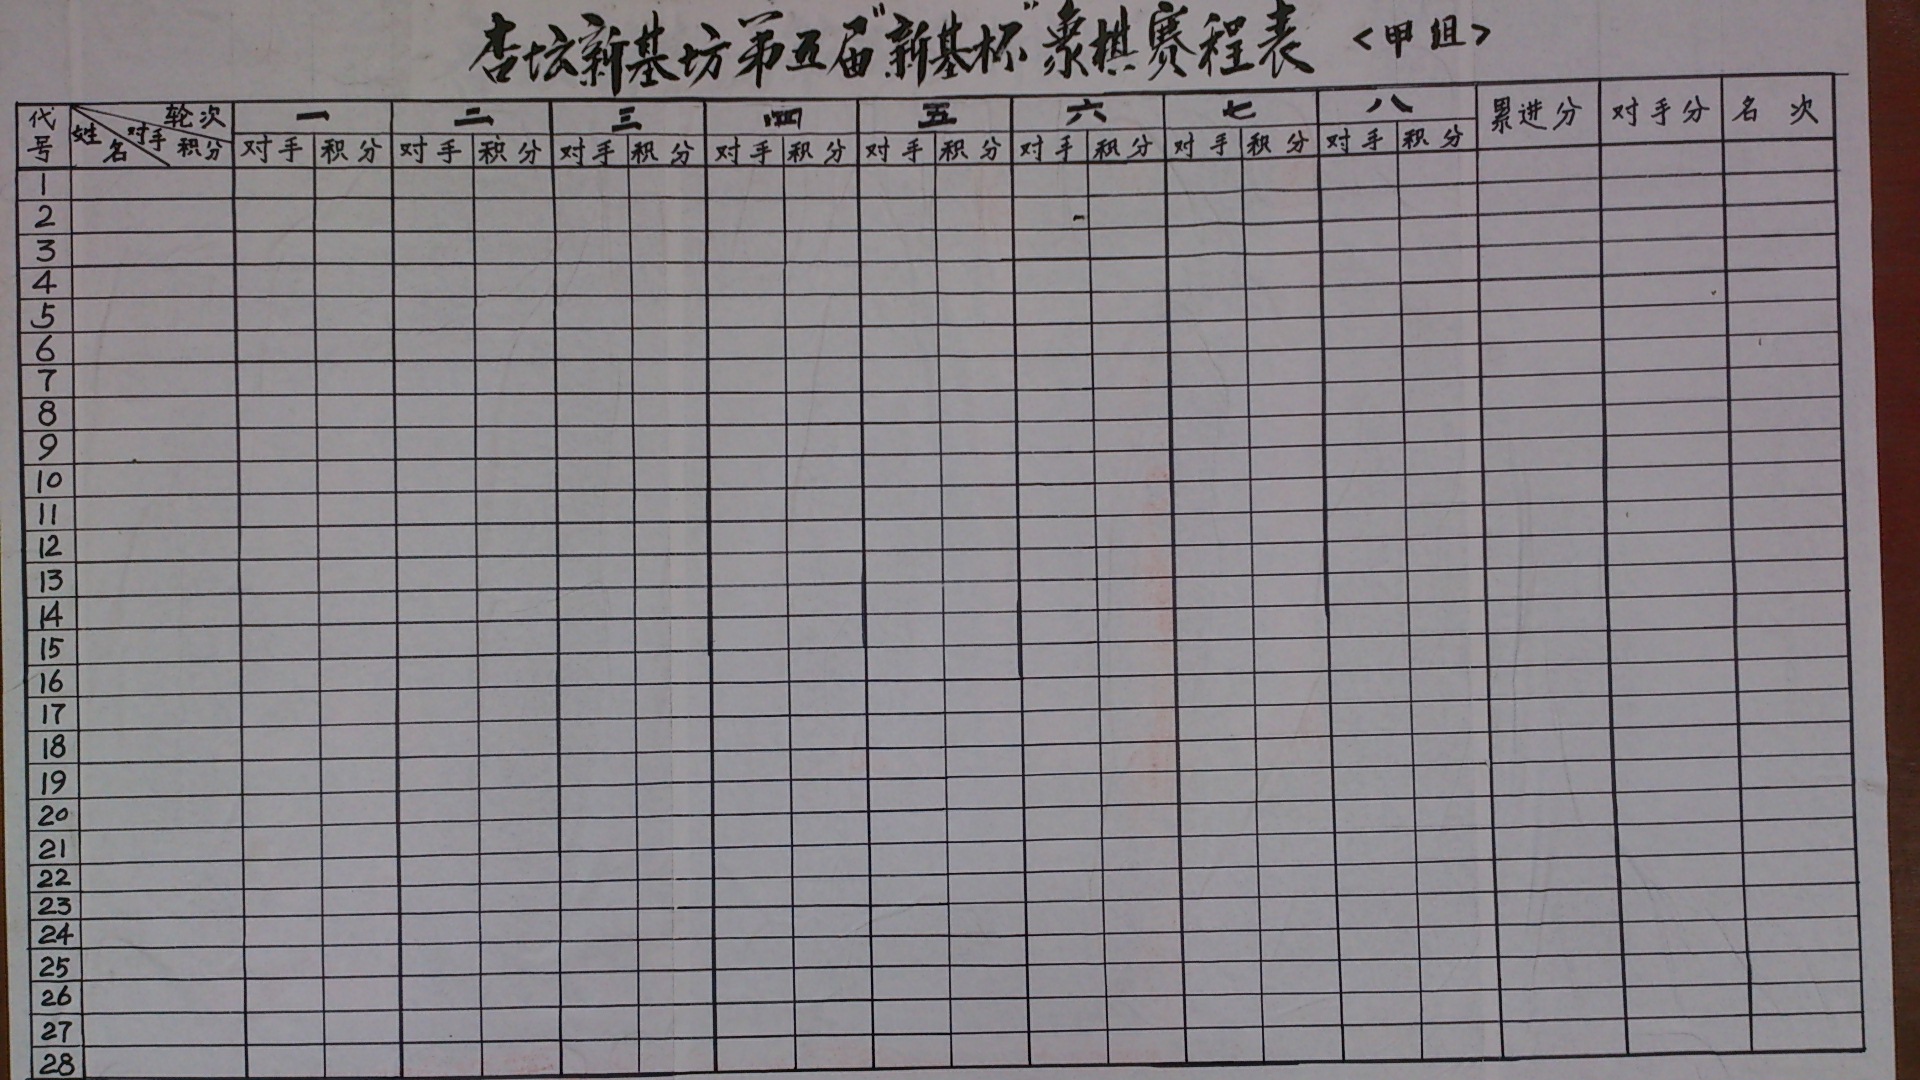 杏坛新基坊第五届"新基杯"象棋赛程表 <甲组>
代号 姓名 对手 轮次 积分 一 二 三 四 五 六 七 八 累进分 对手分 名次
对手 积分 对手 积分 对手 积分 对手 积分 对手 积分 对手 积分 对手 积分 对手 积分
1
2
3
4
5
6
7
8
9
10
11
12
13
14
15
16
17
18
19
20
21
22
23
24
25
26
27
28